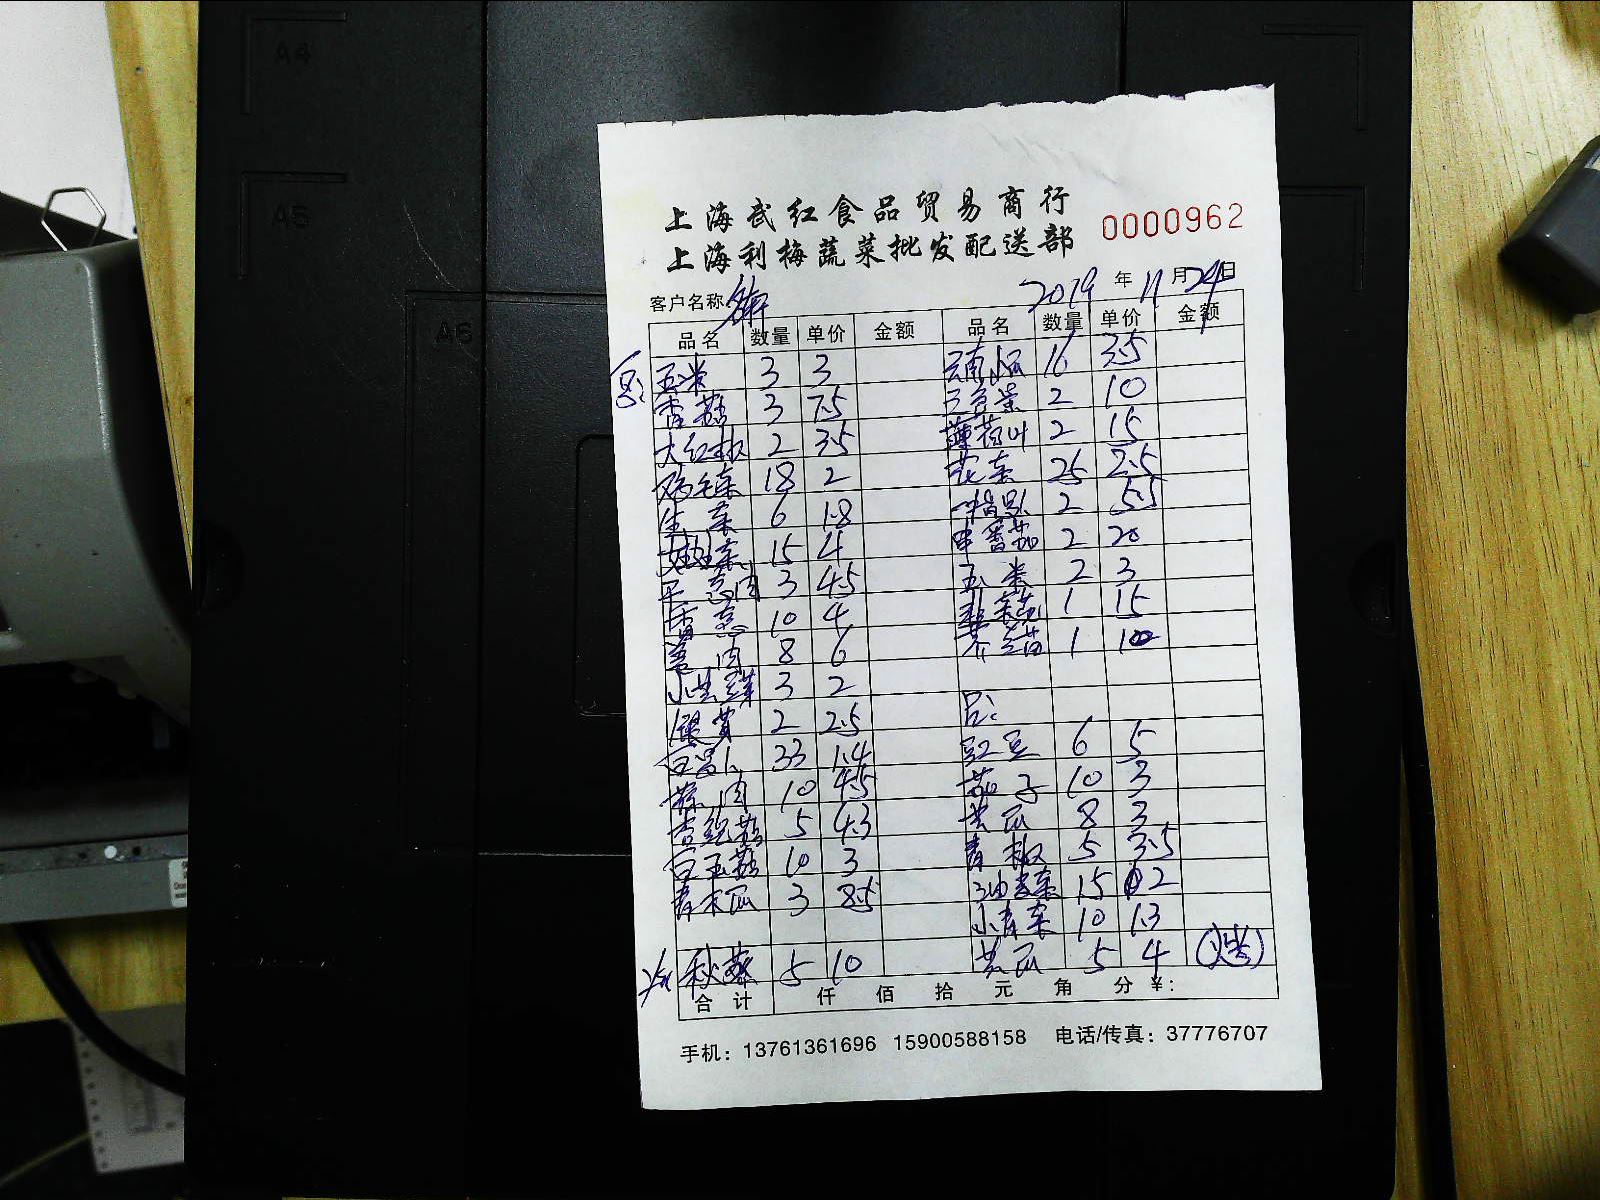 A4
A5
A6
上海武红食品贸易商行
上海利梅蔬菜批发配送部
0000962
客户名称
2019 年 11 月 24 日
品名 数量 单价 金额 品名 数量 单价 金额
玉米 3 3 16 3.5
香菇 3 7.5 2 10
大红椒 2 3.5 薄荷叶 2 15
鸡毛菜 18 2 花菜 25 2.5
生菜 6 1.8 2 5.5
娃娃菜 15 4 串番茄 2 20
3 4.5 玉米 2 3
香葱 10 4 韭菜花 1 15
姜肉 8 6 1 10
小黄豆芽 3 2
银芽 2 2.5
白萝卜 33 1.4 豇豆 6 5
蒜肉 10 4.5 茄子 10 3
杏鲍菇 5 4.3 黄瓜 8 3
白玉菇 10 3 青椒 5 3.5
青木瓜 3 8.5 油麦菜 15 2
小青菜 10 1.3
秋葵 5 10 黄瓜 5 4
合计 仟 佰 拾 元 角 分 ¥:
手机：13761361696 15900588158 电话/传真：37776707